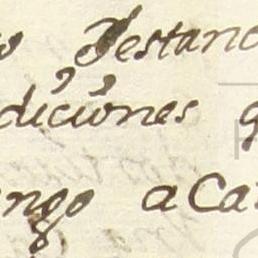 o Jestanc
diciones q
engo a Ca